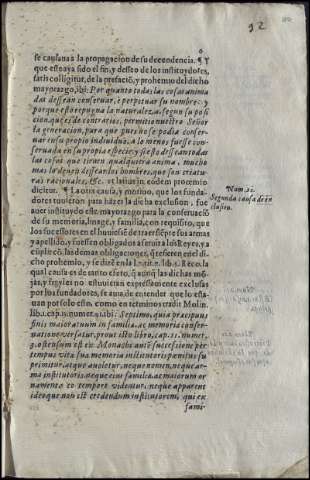 92
6
se causaua a la propagacion de su decendencia. ¶ Y
que esto aya sido el fin, y desseo de los instituydores,
satis colligitur, de la prefactiō, y prohemio del dicho
mayorazgo, ibi: Por quanto todas las cosas anima
das dessean conseruar, è perpetuar su nombre: y
porque esto repugna la naturaleza, segun su posi
cion, que es de contrarios, permitio nuestro Señor
la generacion, para que pues no se podia conser-
uar en su propio indiuiduo, a lo menos fuesse con-
seruada en su propia especie: y si esto dessean todas
las cosas que tienen qualquiera anima, mucho
mas lo deuen dessear los hombres, que son criatu-
ras racionales, &c. et latius in eodem proœmio
dicitur. ¶ La otra causa, y motiuo, que los funda-
dores tuuieron para hazer la dicha exclusion, fue
auer instituydo este mayorazgo para la conseruaciō
de su memoria, linage, y familia, con requisito, que
los sucessores en el huuiessē de traer sièpre sus armas
y apellido, y fuessen obligados a seruir a los Reyes, y a
cūplir cō las demas obligaciones, q̃ refieren en el di-
cho prohemio, y se dirè en la
qual causa es de tanto efeto, q̃ aunq̃ las dichas mō-
jas, y frayles no estuuieran expressamente exclusas
por los fundadores, se auia de entender que lo esta-
uan por solo esto, como en terminos tradit Molin.
lib. 1. cap. 9. numer. 92. ibi: Septimo, quia præcipuus
finis maioratuum in familiæ, ac memoria conser-
uatione versatur, prout isto libro, cap. 11. numer.
9. ostensum est ex Monachi autē successione per
tempus vitæ sua memoria instituentis pœnitus su
primitur, atque aboletur, neque nomen, neque ar-
ma institutoris, neque eius familiæ, ac maiorum or
namenta eo tempore videntur, neque apparent
ideoque non est credendum institutorem, qui ex
fami-
Num. 21.
Segunda causa de ex
clusion.